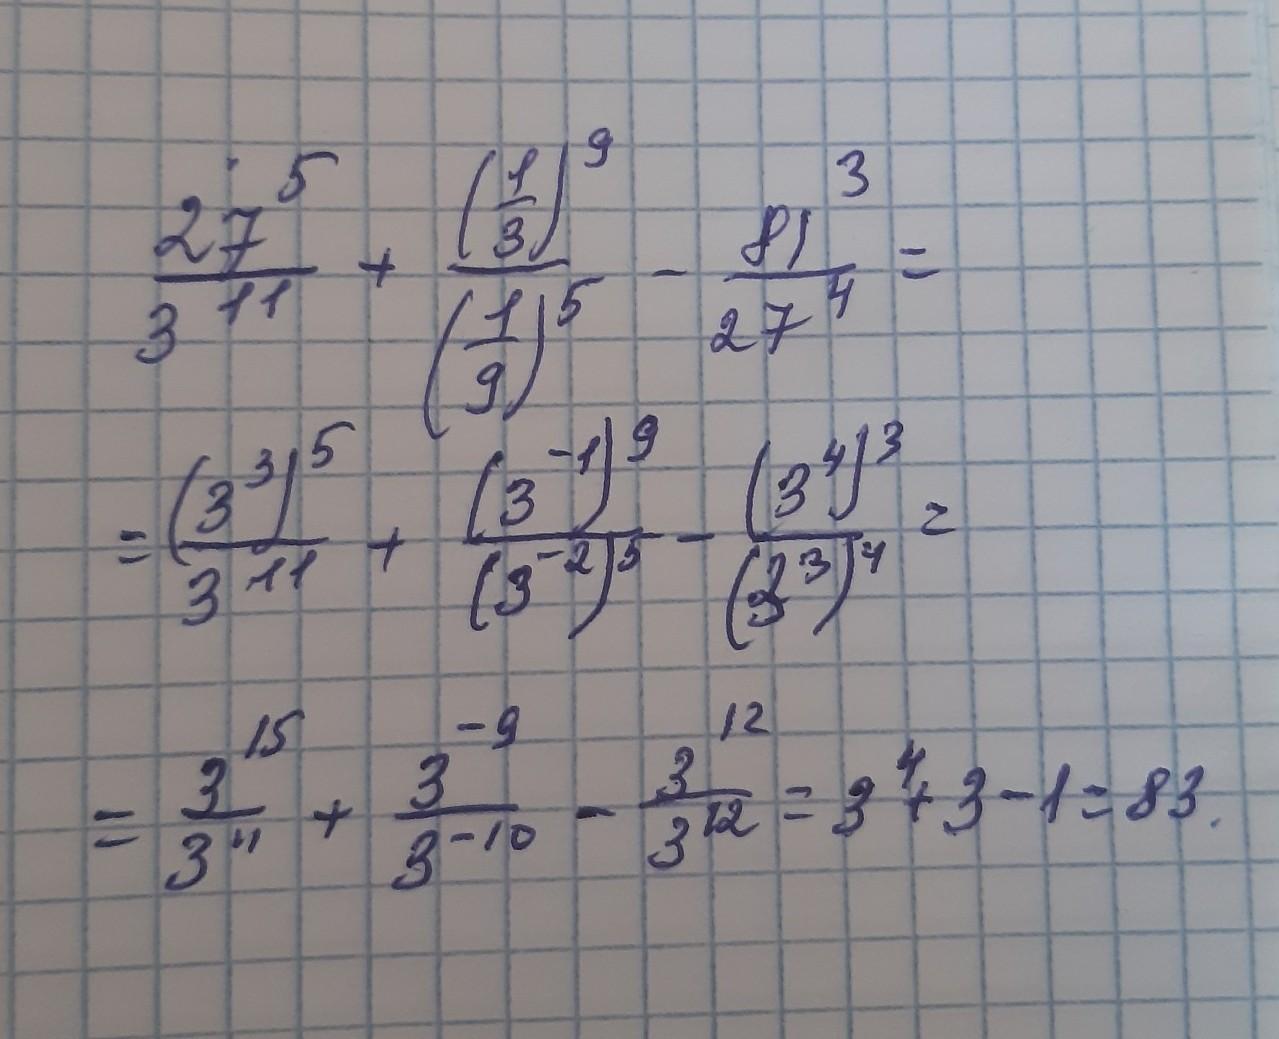 27^5/3^11 + (1/3)^9/(1/9)^5 - 81^3/27^4 =
= (3^3)^5/3^11 + (3^-1)^9/(3^-2)^5 - (3^4)^3/(3^3)^4 =
= 3^15/3^11 + 3^-9/3^-10 - 3^12/3^12 = 3^4 + 3 - 1 = 83.